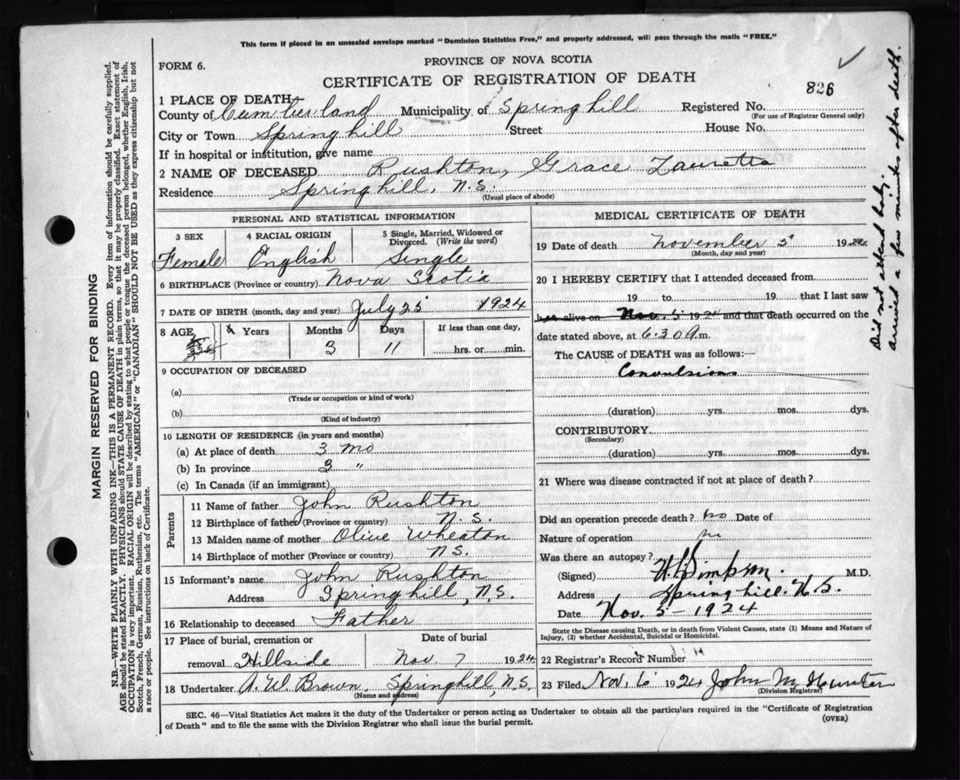 This form if placed in an unsealed envelope marked "Dominion Statistics Free," and properly addressed, will pass through the mails "FREE."
FORM 6.
PROVINCE OF NOVA SCOTIA
CERTIFICATE OF REGISTRATION OF DEATH
826
1 PLACE OF DEATH
County of Cumberland Municipality of Springhill Registered No.
(For use of Registrar General only)
City or Town Springhill Street House No.
If in hospital or institution, give name
2 NAME OF DECEASED Rushton, Grace Lauretta
Residence Springhill, N.S.
(Usual place of abode)
PERSONAL AND STATISTICAL INFORMATION
3 SEX 4 RACIAL ORIGIN 5 Single, Married, Widowed or Divorced. (Write the word)
Female English Single
6 BIRTHPLACE (Province or country) Nova Scotia
7 DATE OF BIRTH (month, day and year) July 25 1924
8 AGE Years Months Days If less than one day,
3 11 hrs. or min.
9 OCCUPATION OF DECEASED
(a)
(Trade or occupation or kind of work)
(b)
(Kind of industry)
10 LENGTH OF RESIDENCE (in years and months)
(a) At place of death 3 mo
(b) In province 3 "
(c) In Canada (if an immigrant)
Parents
11 Name of father John Rushton
12 Birthplace of father (Province or country) N.S.
13 Maiden name of mother Olive Wheaton
14 Birthplace of mother (Province or country) N.S.
15 Informant's name John Rushton
Address Springhill, N.S.
16 Relationship to deceased Father
17 Place of burial, cremation or removal Hillside Date of burial Nov 7 1924
18 Undertaker A. W. Brown, Springhill, N.S.
(Name and address)
MEDICAL CERTIFICATE OF DEATH
19 Date of death November 5 1924
(Month, day and year)
20 I HEREBY CERTIFY that I attended deceased from
19 to 19 that I last saw
her alive on Nov. 5 1924 and that death occurred on the
date stated above, at 6.30 a m.
The CAUSE of DEATH was as follows:—
Convulsions
(duration) yrs. mos. dys.
CONTRIBUTORY
(Secondary)
(duration) yrs. mos. dys.
21 Where was disease contracted if not at place of death?
Did an operation precede death? no Date of
Nature of operation
Was there an autopsy? no
(Signed) Simpson M.D.
Address Springhill. N.S.
Date Nov. 5 - 1924
State the Disease causing Death, or in death from Violent Causes, state (1) Means and Nature of Injury, (2) whether Accidental, Suicidal or Homicidal.
22 Registrar's Record Number
23 Filed Nov. 6 1924 John M Hunter
(Division Registrar)
SEC. 46—Vital Statistics Act makes it the duty of the Undertaker or person acting as Undertaker to obtain all the particulars required in the "Certificate of Registration
of Death" and to file the same with the Division Registrar who shall issue the burial permit.
(OVER)
Did not attend baby.
arrived a few minutes after death.
MARGIN RESERVED FOR BINDING
N.B.—WRITE PLAINLY WITH UNFADING INK—THIS IS A PERMANENT RECORD. Every item of information should be carefully supplied.
AGE should be stated EXACTLY. PHYSICIANS should STATE CAUSE OF DEATH in plain terms, so that it may be properly classified. Exact statement of
OCCUPATION is very important. RACIAL ORIGIN will be described by stating to what people or tongue the deceased person belonged, whether English, Irish,
Scotch, French, German, Russian, Ruthenian, etc. The terms "AMERICAN" or "CANADIAN" SHOULD NOT BE USED as they express citizenship but not
a race or people. See instructions on back of Certificate.